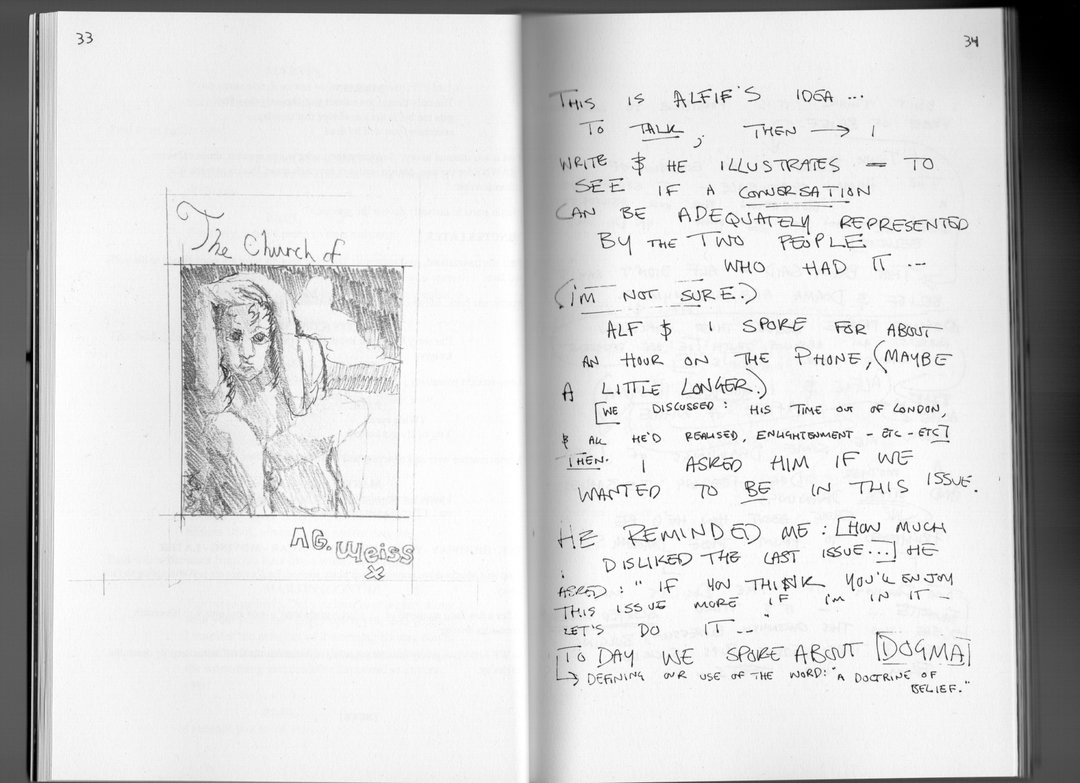 33
The Church of
AG. Weiss
x
34
THIS IS ALFIE'S IDEA ...
TO TALK, THEN → I
WRITE & HE ILLUSTRATES – TO
SEE IF A CONVERSATION
CAN BE ADEQUATELY REPRESENTED
BY THE TWO PEOPLE
WHO HAD IT ...
(I'M NOT SURE.)
ALF & I SPOKE FOR ABOUT
AN HOUR ON THE PHONE, (MAYBE
A LITTLE LONGER.)
[WE DISCUSSED: HIS TIME OUT OF LONDON,
& ALL HE'D REALISED, ENLIGHTENMENT – ETC – ETC]
THEN. I ASKED HIM IF WE
WANTED TO BE IN THIS ISSUE.
HE REMINDED ME: [HOW MUCH
I DISLIKED THE LAST ISSUE...] HE
ASKED: "IF YOU THINK YOU'LL ENJOY
THIS ISSUE MORE IF I'M IN IT –
LET'S DO IT..."
TODAY WE SPOKE ABOUT [DOGMA]
↳ DEFINING OUR USE OF THE WORD: "A DOCTRINE OF
BELIEF."